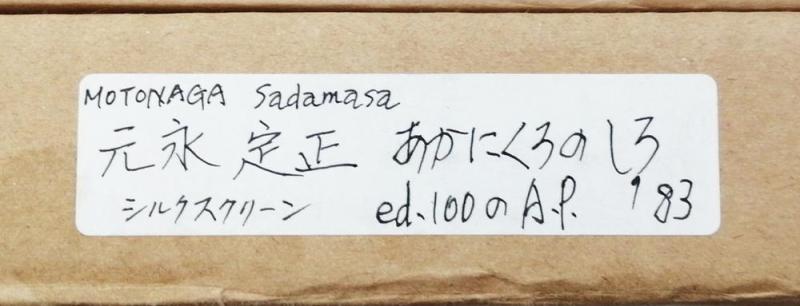 MOTONAGA Sadamasa
元永 定正 あかにくろのしろ
シルクスクリーン ed.100のA.P. '83